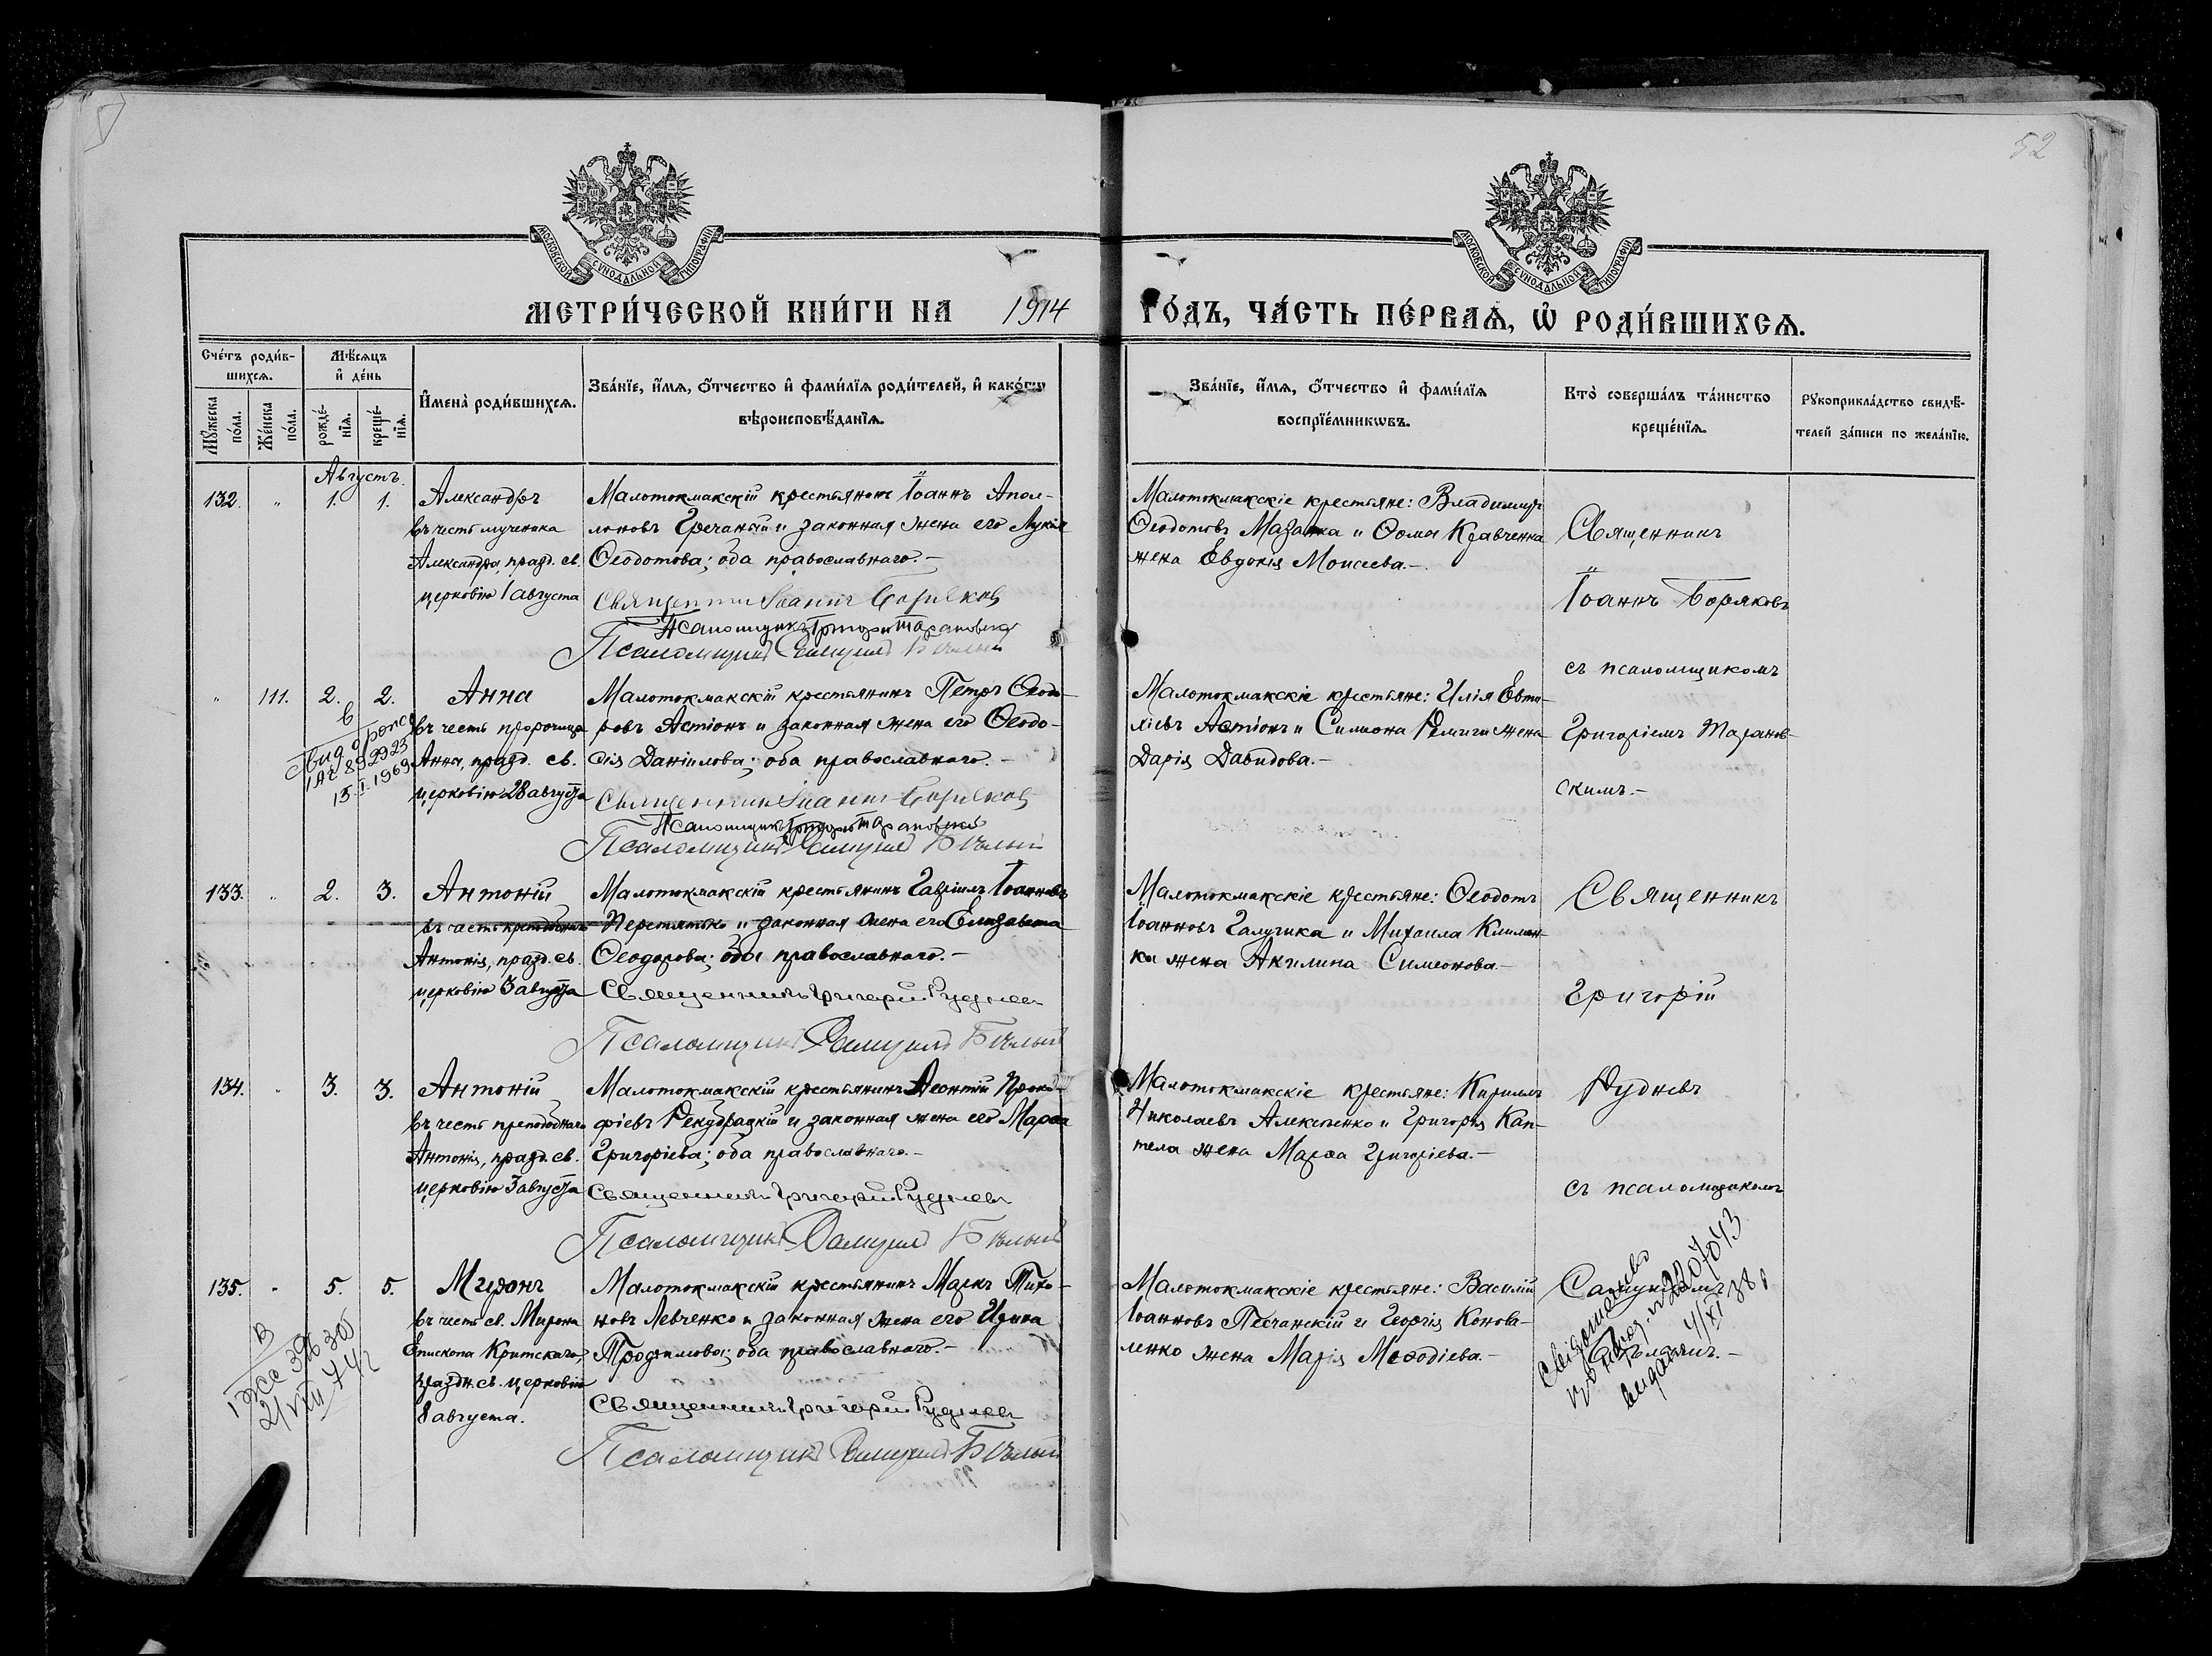 52
МОСКОВСКОЙ СѴНОДАЛЬНОЙ ТИПОГРАФІИ
МОСКОВСКОЙ СѴНОДАЛЬНОЙ ТИПОГРАФІИ
МЕТРИ́ЧЕСКОЙ КНИ́ГИ НА 1914 ГО́ДЪ, ЧА́СТЬ ПЕ́РВАѦ, Ѡ҆ РОДИ́ВШИХСѦ.
Сче́тъ роди́в-
шихсѧ.
Мꙋ́жеска по́ла.
Же́нска по́ла.
Мѣ́сѧцъ
и҆ де́нь
рожде́-
нїѧ.
креще́-
нїѧ.
И҆мена̀ роди́вшихсѧ.
Зва́нїе, и҆́мѧ, ѻ҆́тчество и҆ фами́лїѧ роди́телей, и҆ како́гѡ
вѣроисповѣ́данїѧ.
Зва́нїе, и҆́мѧ, ѻ҆́тчество и҆ фами́лїѧ
воспрїе́мникѡвъ.
Кто̀ соверша́лъ та́инство
креще́нїѧ.
Рꙋкоприкла́дство свидѣ́-
телей за́писи по жела́нїю.
Августъ.
132. " 1. 1.
Александръ
въ честь мученика
Александра, празд. св.
церковію 1 августа
Малотокмакскій крестьянинъ Іоаннъ Апол-
лоновъ Гречаный и законная жена его Лукія
Ѳеодотова; оба православнаго.-
Священникъ Іоаннъ Боряковъ
Псаломщикъ Григорій Тарановскій
Псаломщикъ Самуилъ Бѣлый
Малотокмакскіе крестьяне: Владимиръ
Ѳеодотовъ Мазанка и Ѳомы Кравченка
жена Евдокія Моисеева.-
Священникъ
Іоаннъ Боряковъ
съ псаломщикомъ
Григоріемъ Таранов-
скимъ.-
" 111. 2. 2.
Анна
въ честь пророчицы
Анны, празд. св.
церковію 28 августа
13.I.1969
Малотокмакскій крестьянинъ Петръ Ѳеодо-
ровъ Астіонъ и законная жена его Ѳеодо-
сія Даніилова; оба православнаго.-
Священникъ Іоаннъ Боряковъ
Псаломщикъ Григорій Тарановскій
Псаломщикъ Самуилъ Бѣлый
Малотокмакскіе крестьяне: Илія Евти-
хіевъ Астіонъ и Симеона Ремиги жена
Дарія Давидова.-
133. " 2. 3.
Антоній
въ честь преподобнаго
Антонія, празд. св.
церковію 3 августа
Малотокмакскій крестьянинъ Гавріилъ Іоанновъ
Перетятько и законная жена его Елизавета
Ѳеодорова; оба православнаго.-
Священникъ Григорій Рудневъ
Псаломщикъ Самуилъ Бѣлый
Малотокмакскіе крестьяне: Ѳеодотъ
Іоанновъ Галушка и Михаила Климен-
ка жена Акилина Симеонова.-
Священникъ
Григорій
Рудневъ
съ псаломщикомъ
Самуиломъ
Бѣлымъ.-
134. " 3. 3.
Антоній
въ честь преподобнаго
Антонія, празд. св.
церковію 3 августа
Малотокмакскій крестьянинъ Леонтій Проко-
фіевъ Рекубрадкій и законная жена его Марѳа
Григоріева; оба православнаго.-
Священникъ Григорій Рудневъ
Псаломщикъ Самуилъ Бѣлый
Малотокмакскіе крестьяне: Кириллъ
Николаевъ Алексѣенко и Григорія Кап-
тела жена Марѳа Григоріева.-
135. " 5. 5.
Миронъ
въ честь св. Мирона
Епископа Критскаго,
праздн. св. церковію
8 августа.
Малотокмакскій крестьянинъ Маркъ Тихо-
новъ Левченко и законная жена его Ирина
Трофимова; оба православнаго.-
Священникъ Григорій Рудневъ
Псаломщикъ Самуилъ Бѣлый
Малотокмакскіе крестьяне: Василій
Іоанновъ Песчанскій и Георгія Конова-
ленко жена Марія Меѳодіева.-